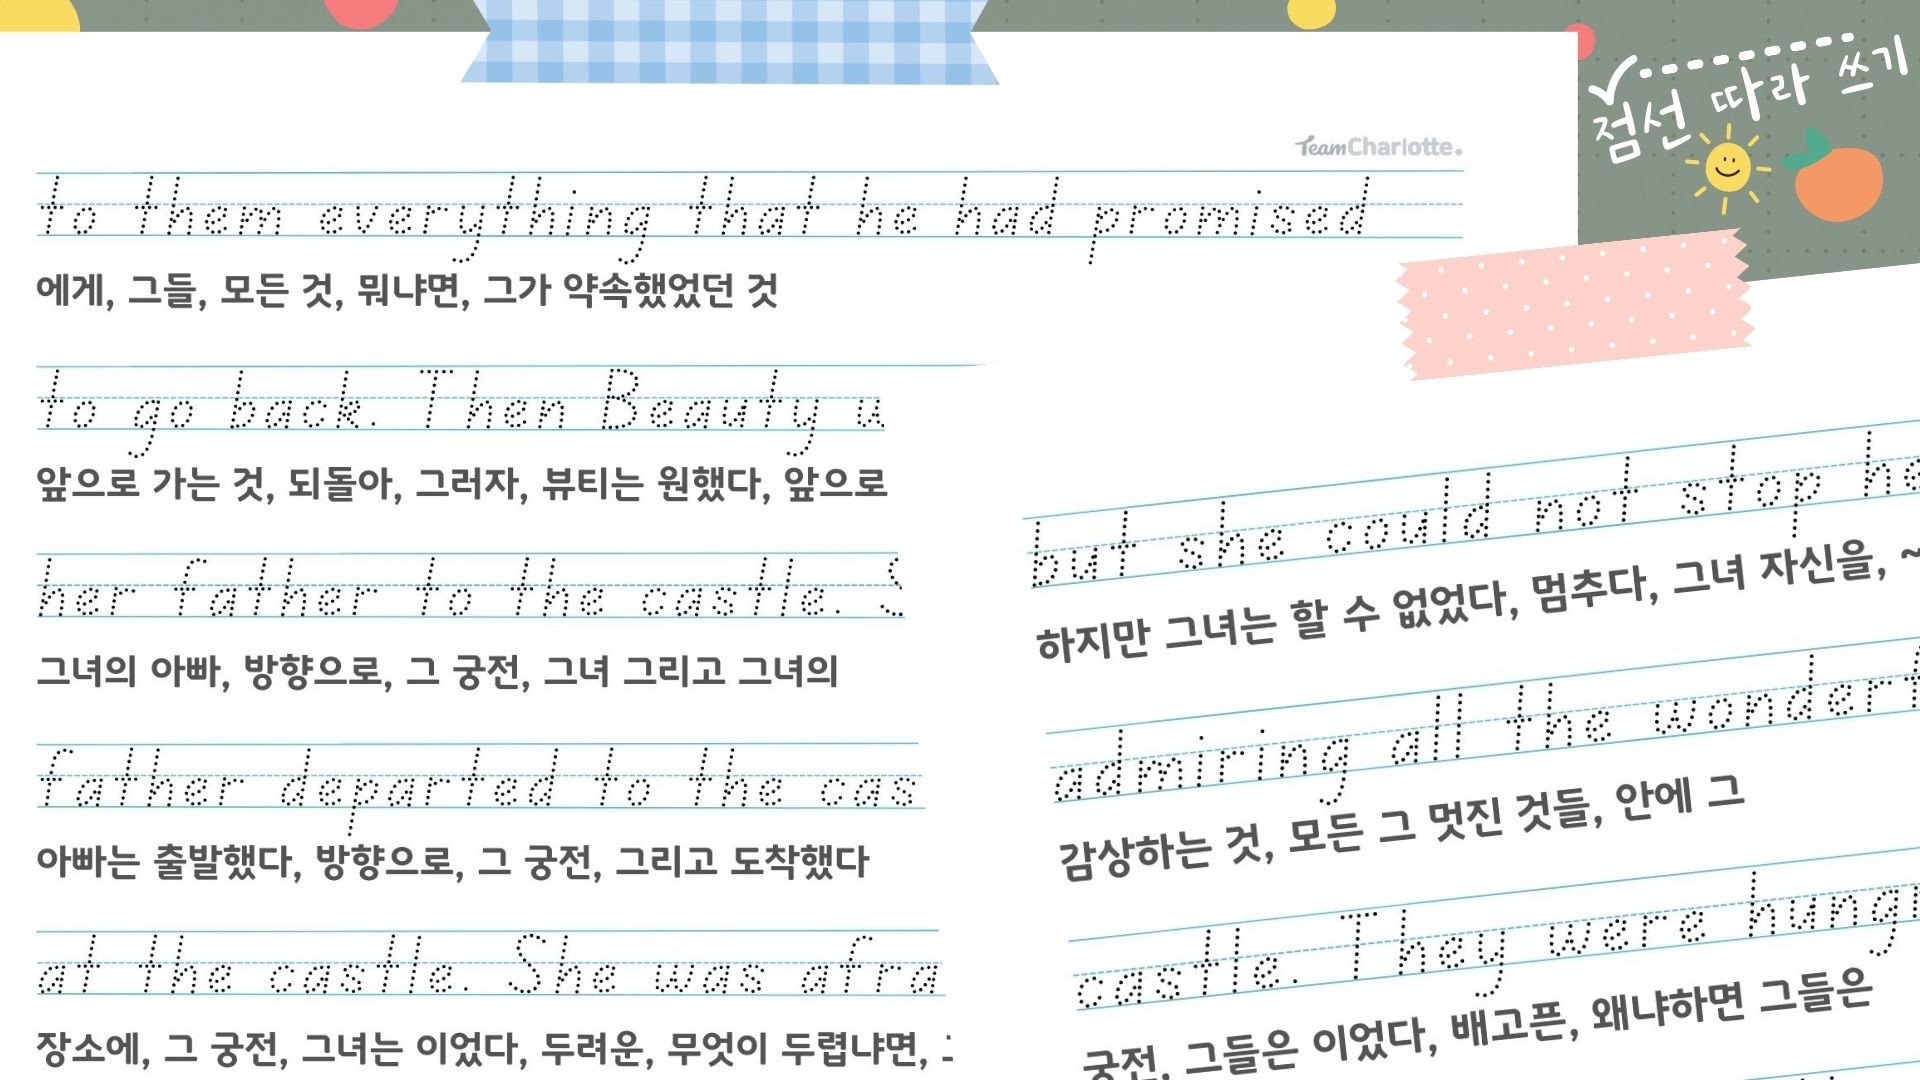 점선 따라 쓰기
TeamCharlotte.
to them everything that he had promised
에게, 그들, 모든 것, 뭐냐면, 그가 약속했었던 것
to go back. Then Beauty
앞으로 가는 것, 되돌아, 그러자, 뷰티는 원했다, 앞으로
her father to the castle. S
그녀의 아빠, 방향으로, 그 궁전, 그녀 그리고 그녀의
father departed to the cas
아빠는 출발했다, 방향으로, 그 궁전, 그리고 도착했다
at the castle. She was afra
장소에, 그 궁전, 그녀는 이었다, 두려운, 무엇이 두렵냐면,
but she could not stop he
하지만 그녀는 할 수 없었다, 멈추다, 그녀 자신을, ~
admiring all the wonderf
감상하는 것, 모든 그 멋진 것들, 안에 그
castle. They were hungr
궁전, 그들은 이었다, 배고픈, 왜냐하면 그들은